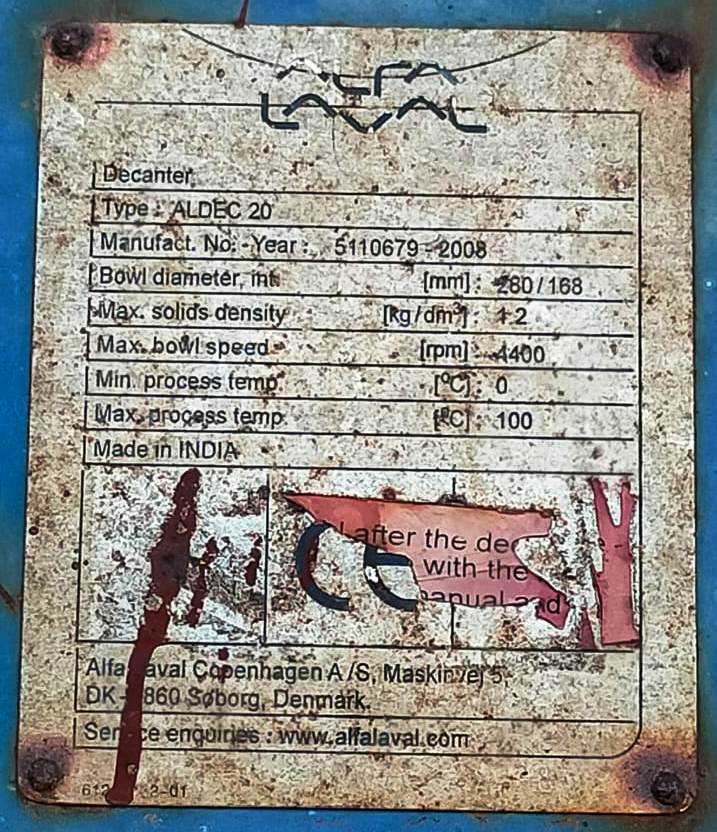 ALFA
LAVAL
Decanter
Type : ALDEC 20
Manufact. No. -Year : 5110679 - 2008
Bowl diameter, int. [mm] : 280/168
Max. solids density [kg/dm³] : 1.2
Max. bowl speed [rpm] : 4400
Min. process temp. [°C] : 0
Max. process temp. [°C] : 100
Made in INDIA
after the
CE with the
Alfa Laval Copenhagen A/S, Maskinvej 5
DK - 860 Søborg, Denmark.
Service enquiries : www.alfalaval.com